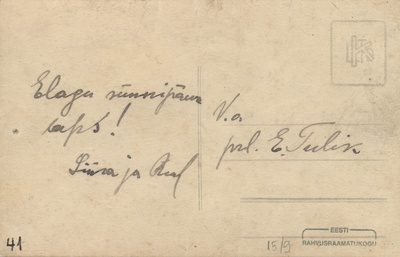 Elagu sünnipäeva
laps!
ja
V.a
prl. E. Tulik
EESTI
RAHVUSRAAMATUKOGU
15/9
41